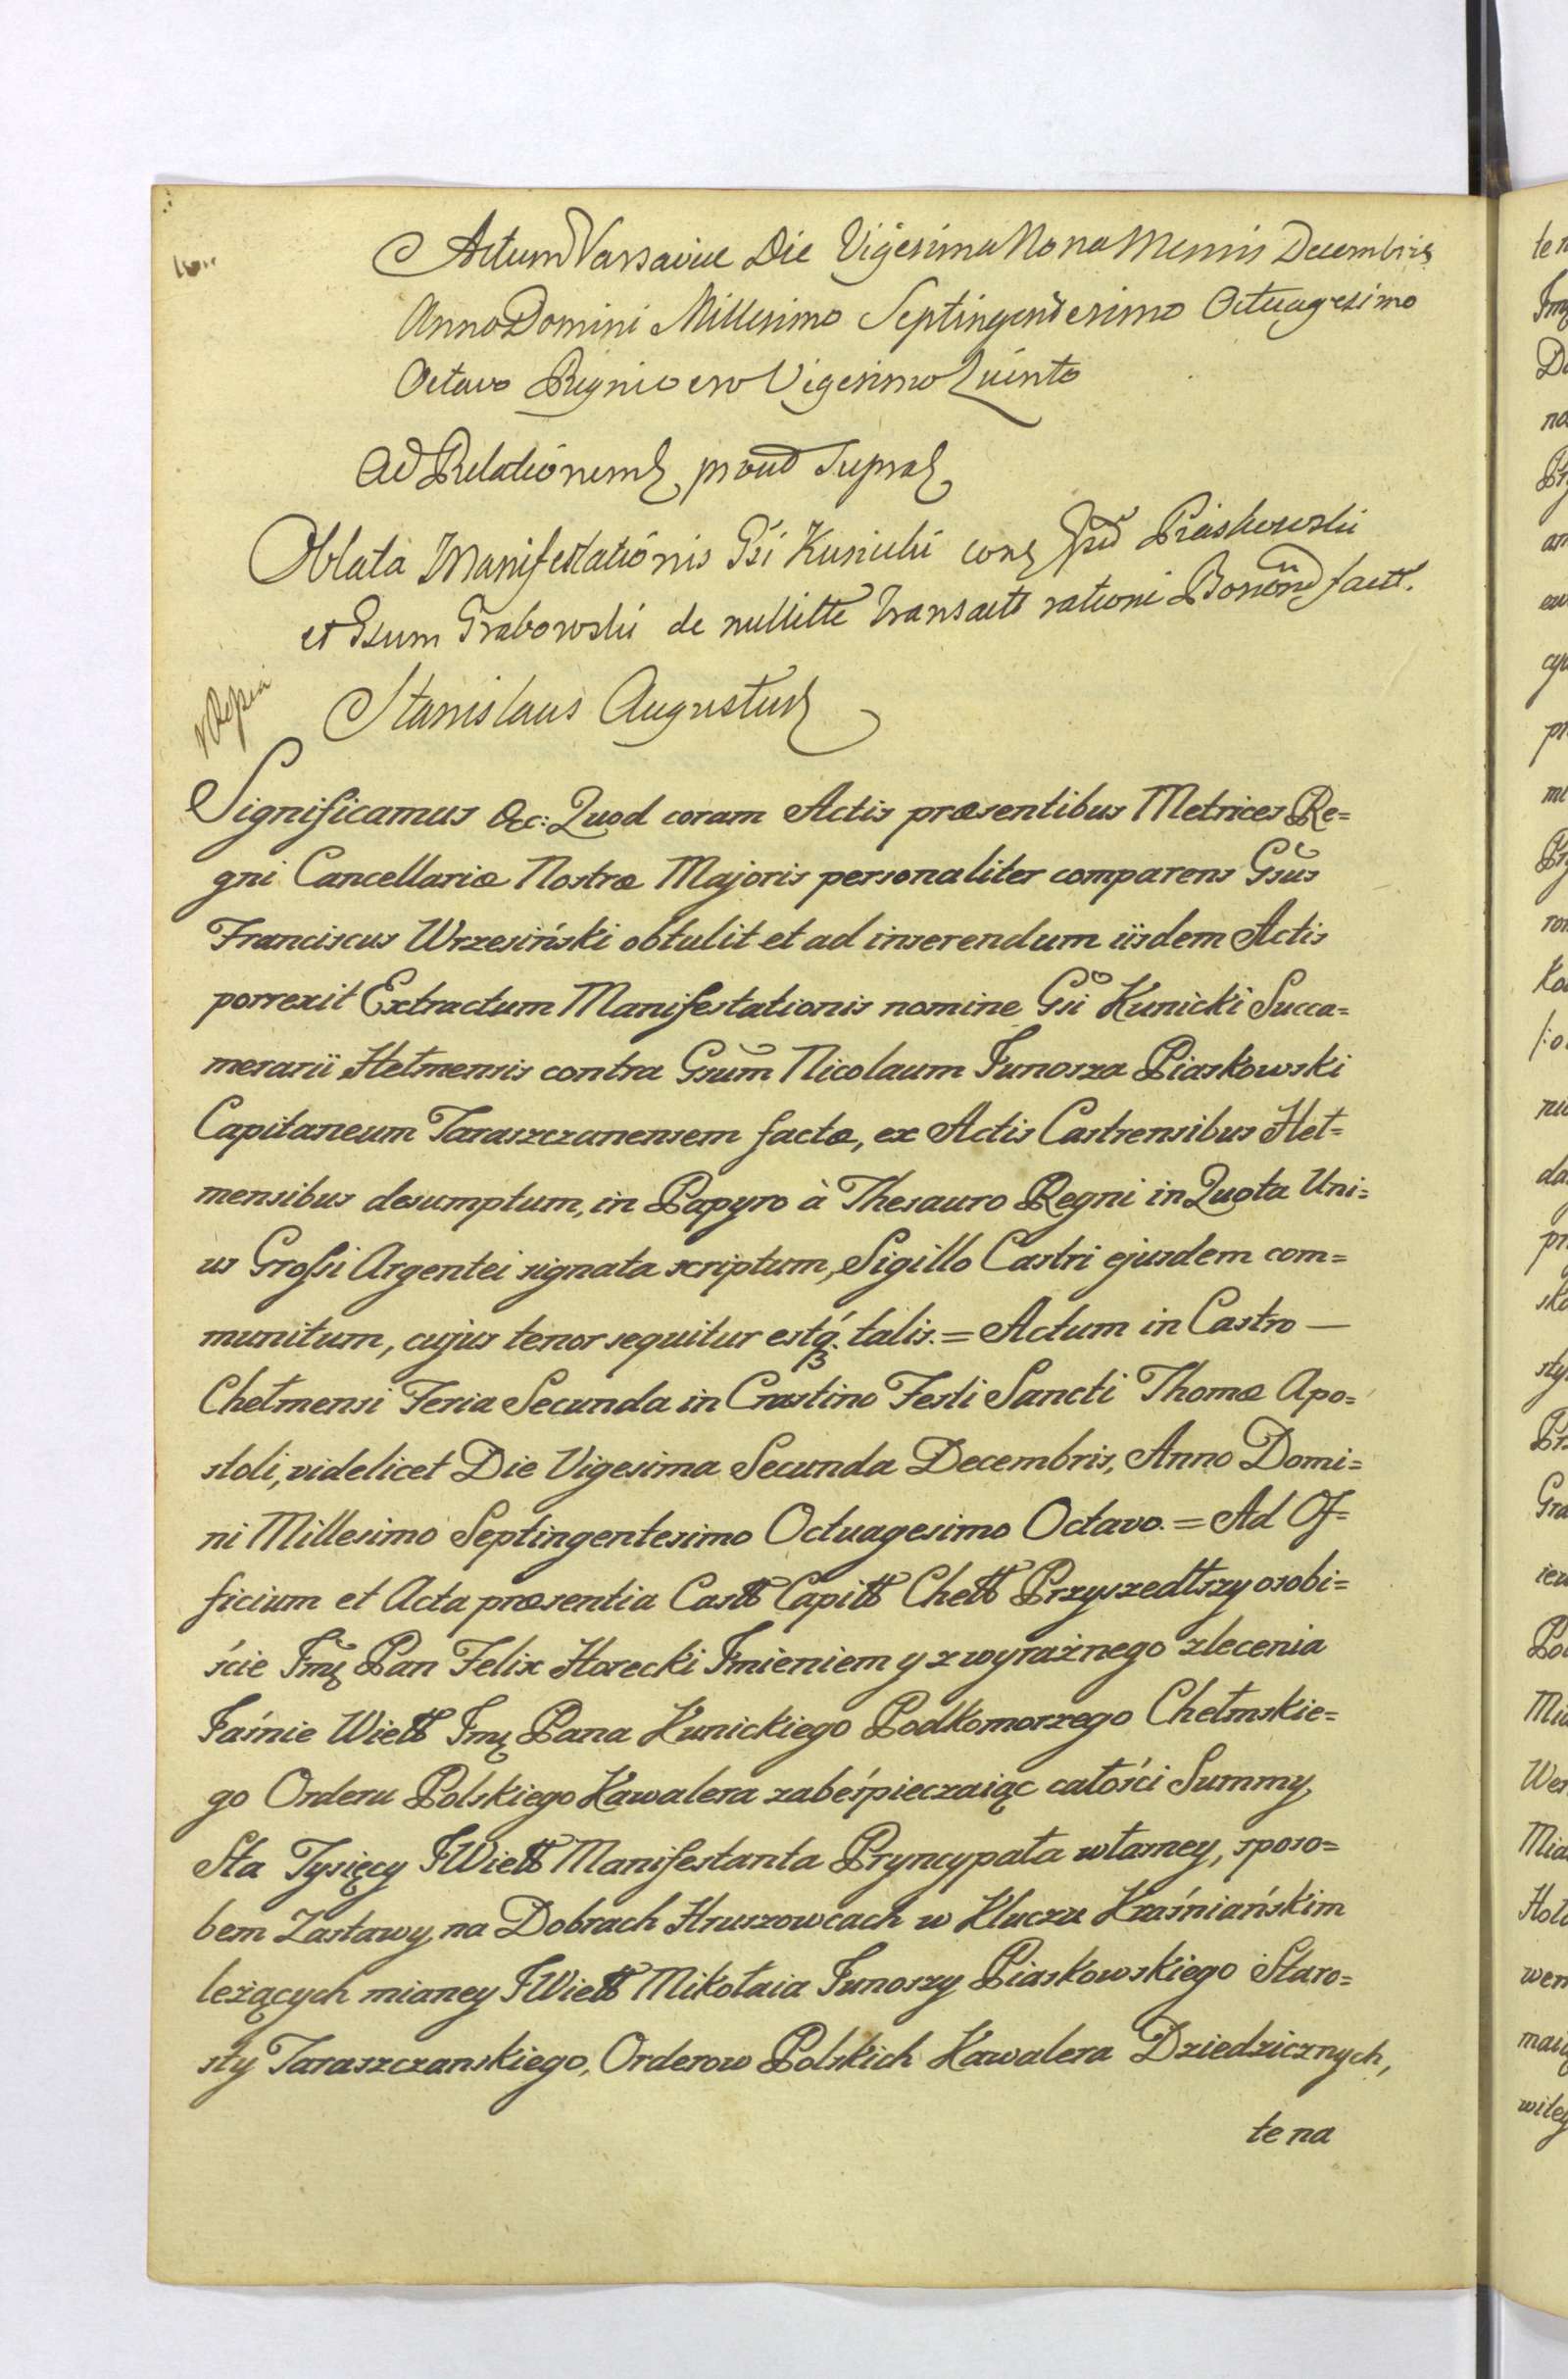 Actum Varsaviae Die Vigesima Nona Mensis Decembris
Anno Domini Millesimo Septingentesimo Octuagesimo
Octavo Regni vero Vigesimo Quinto
Ad Relationem prout supra
Oblata Manifestationis Gsi Kunicki con Gsum Piaskowski
et Gsum Grabowski de nullitte Transact rationi Bonōrū fact.
Stanislaus Augustus
Significamus &c: Quod coram Actis præsentibus Metrices Re=
gni Cancellariæ Nostræ Majoris personaliter comparens Gsus
Franciscus Wrzesiński obtulit et ad inserendum iisdem Actis
porrexit Extractum Manifestationis nomine Gsi Kunicki Succa=
merarii Hełmensis contra Gsum Nicolaum Junosza Piaskowski
Capitaneum Taraszczanensem factæ, ex Actis Castrensibus Heł=
mensibus desumptum, in Papyro à Thesauro Regni in Quota Uni=
us Grossi Argentei signata scriptum, Sigillo Castri ejusdem com=
munitum, cujus tenor sequitur estq́. talis. = Actum in Castro —
Chełmensi Feria Secunda in Crastino Festi Sancti Thomæ Apo=
stoli, videlicet Die Vigesima Secunda Decembris, Anno Domi=
ni Millesimo Septingentesimo Octuagesimo Octavo. = Ad Of=
ficium et Acta præsentia Castt Capitt Chełł Przyszedłszy osobi=
ście Jmę Pan Felix Horecki Jmieniem y z wyraźnego zlecenia
Jaśnie Wielł Jmę Pana Kunickiego Podkomorzego Chełmskie=
go Orderu Polskiego Kawalera zabeśpieczaiąc całości Summy,
Sta Tysięcy JWielł Manifestanta Pryncypała własney, sposo=
bem Zastawy na Dobrach Hruszowcach w Kluczu Kraśniańskim
leżących mianey JWielł Mikołaia Junoszy Piaskowskiego Staro=
sty Taraszczanskiego, Orderow Polskich Kawalera Dziedzicznych,
te na